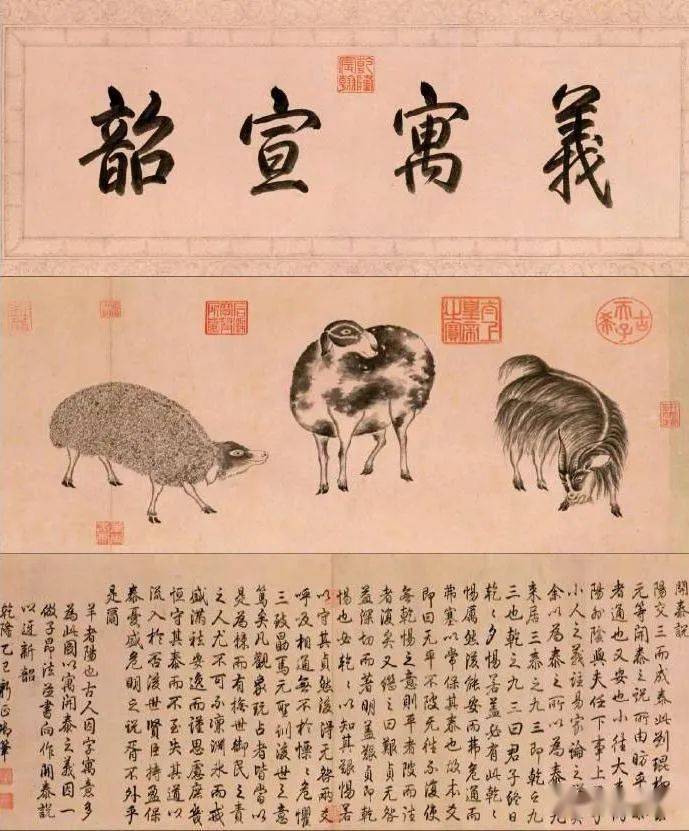 義寓宣韶
乾隆宸翰
古稀天子
太上皇帝之寶
開泰說
陽交三而成泰此劉琨柳宗
元等開泰之說所由昉乎泰
者通也又安也小往大來內
陽外陰與夫任下事上君子
小人之義注易家論之詳矣
余以為泰之所以為泰九
來居三泰之九三即乾之九
三也乾之九三曰君子終日
乾〻夕惕若蓋必有此乾〻
惕厲然後能安而弗危通而
弗塞以常保其泰也故本爻
即曰无平不陂无往不復使
無乾惕之意則平者陂而往
者復矣又繼之曰艱貞无咎
益深切而著明蓋艱貞即乾
惕也安乾〻以知其艱惕若
以守其貞然後得无咎兩爻
呼吸相通無不於慄〻危懼
三致勗焉元聖訓後世之意
篤矣凡觀象玩占者皆當以
是為棣而有撫世御民之責
之人尤不可不凜淵冰而戒
盛滿祛安逸而謹思慮庶幾
恒守其泰而不至失其道以
流入於否後世賢臣持盈保
泰憂盛危明之說胥不外乎
是爾
羊者陽也古人因字寓意多
為此圖以寓開泰之義因一
倣子昂法並書向作開泰說
以迓新韶
乾隆乙巳新正御筆